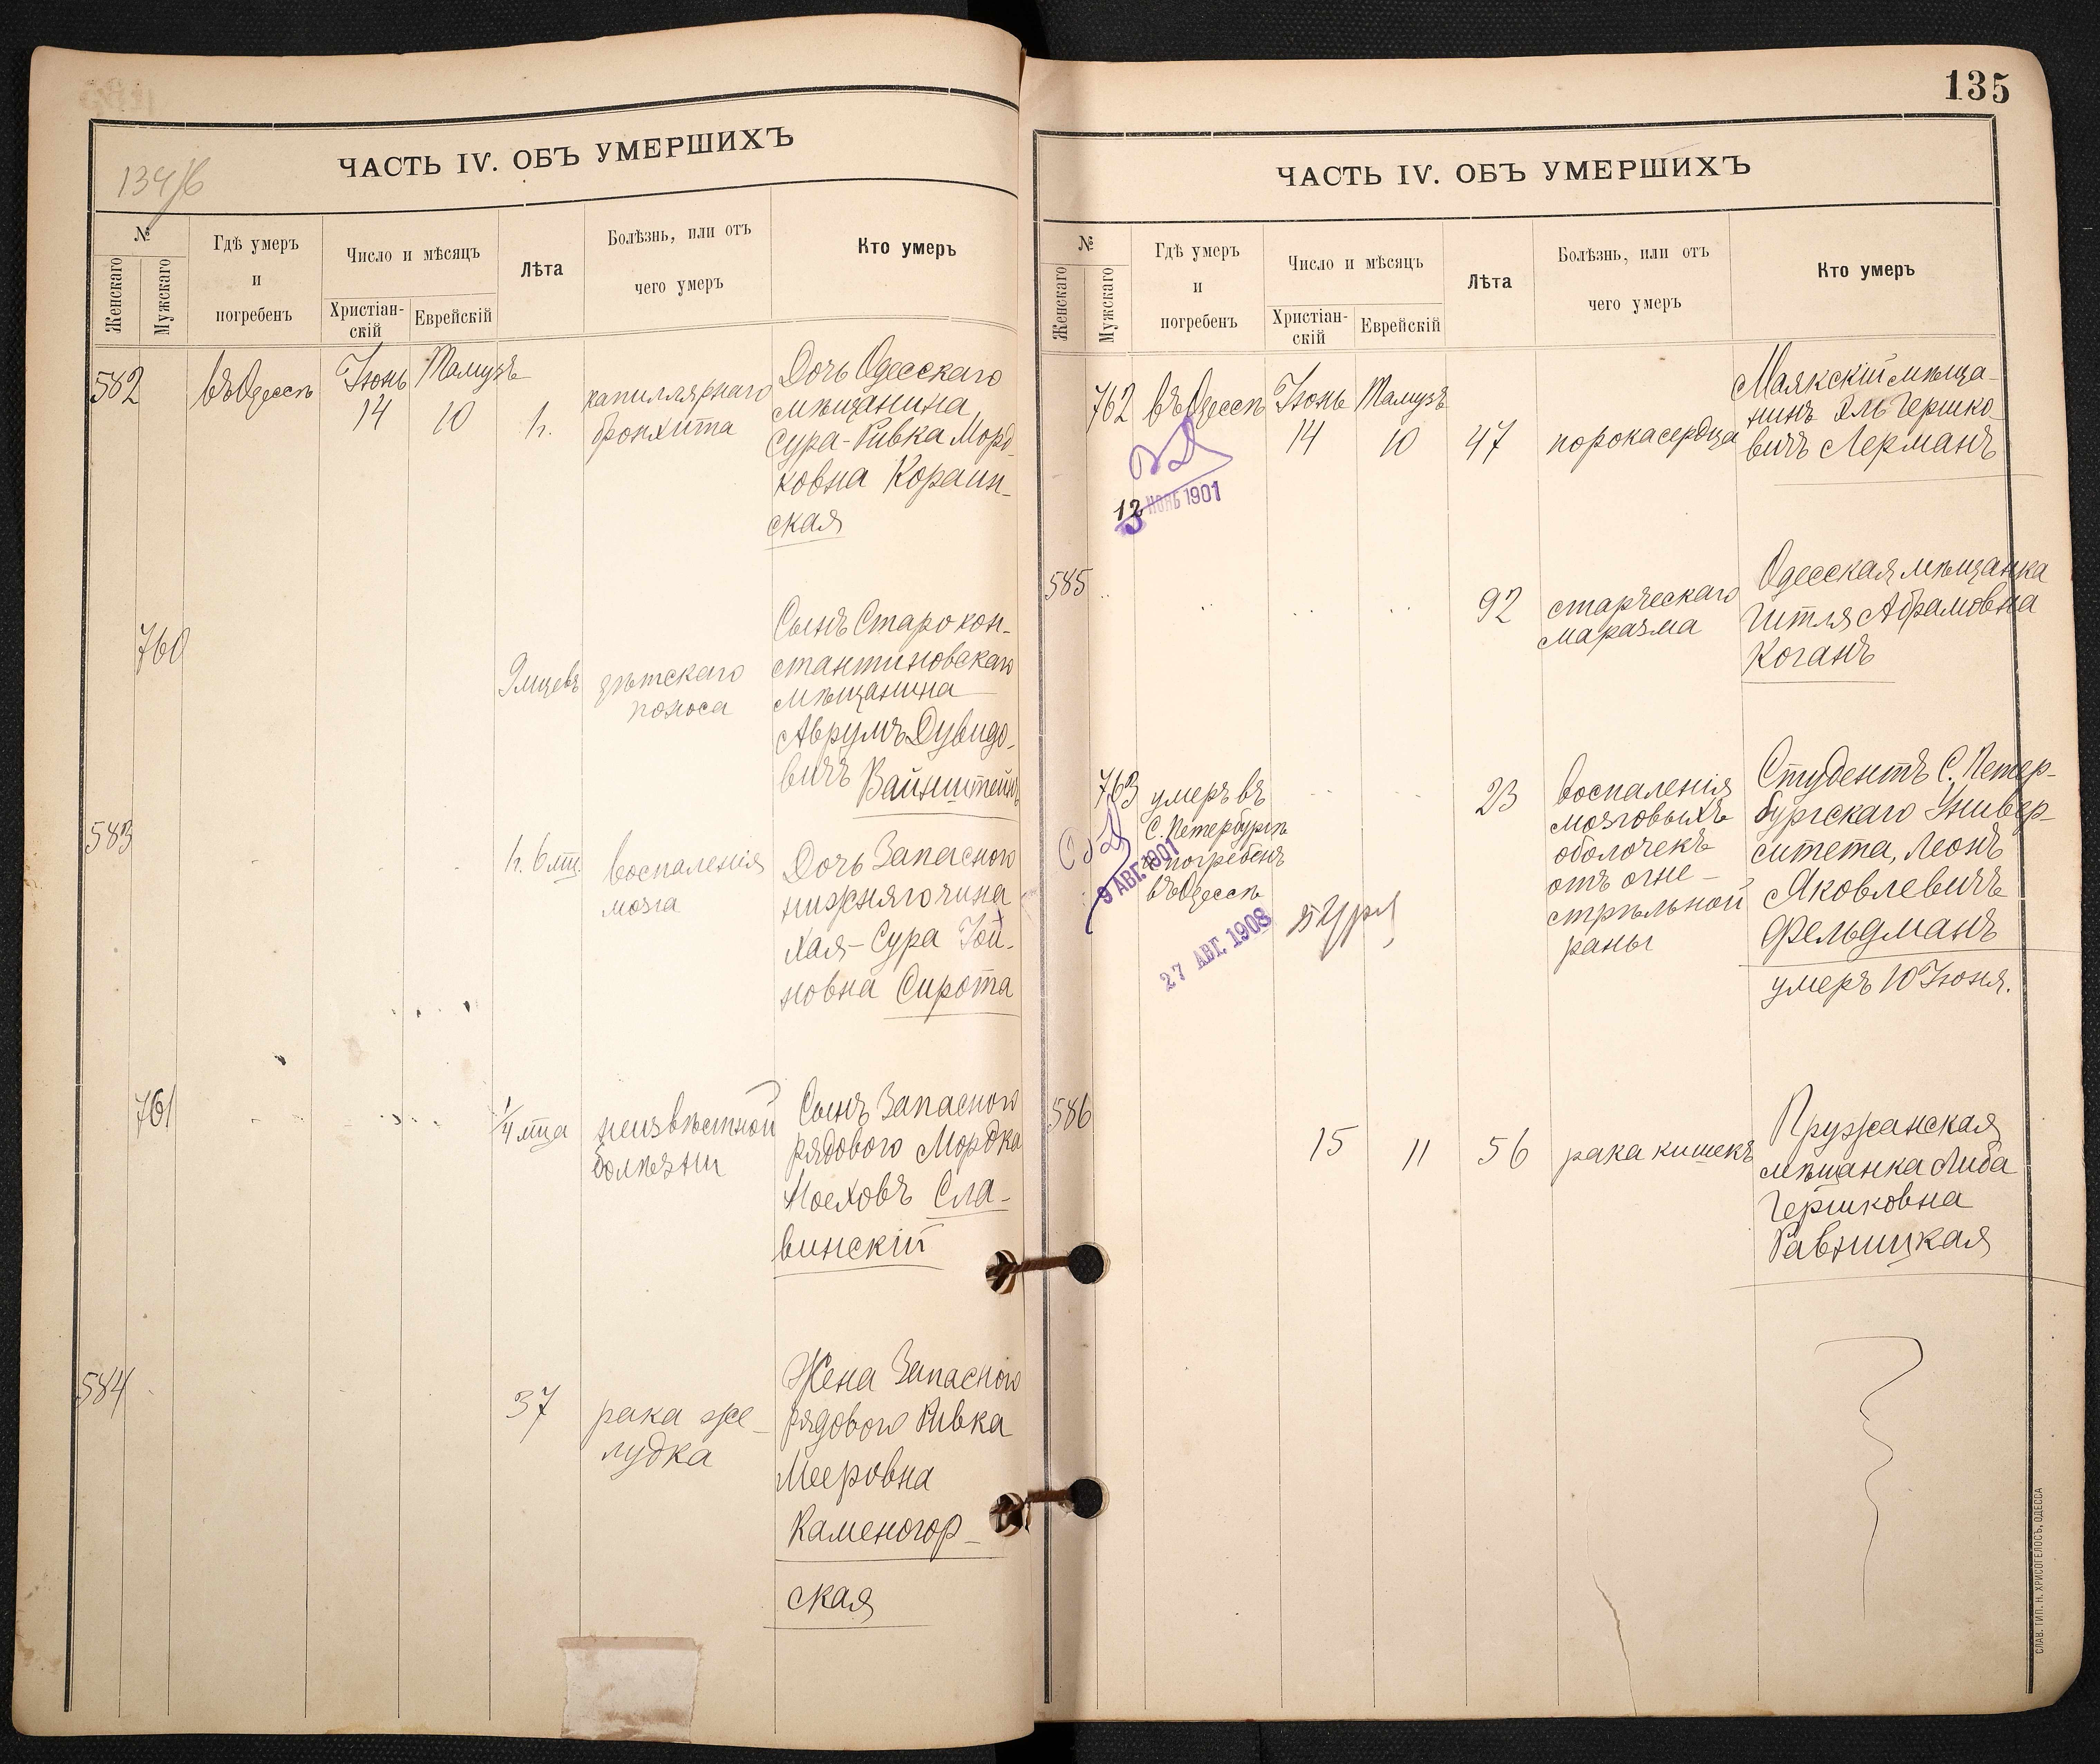 134/б
ЧАСТЬ IV. ОБЪ УМЕРШИХЪ
№
Женскаго
Мужскаго
Гдѣ умеръ
и
погребенъ
Число и мѣсяцъ
Христіан-
скій
Еврейскій
Лѣта
Болѣзнь, или отъ
чего умеръ
Кто умеръ
582
въ Одессѣ
Іюнь
14
Тамузъ
10
1 г.
капиллярнаго
бронхита
Дочь Одесскаго
мѣщанина
Сура-Ривка Морд-
ковна Кораин-
ская
760
9 мцевъ
дѣтскаго
поноса
Сынъ Старокон-
стантиновскаго
мѣщанина
Аврумъ Дувидо-
вичъ Вайнштейнъ
583
1 г. 6 мц.
воспаленія
мозга
Дочь Запасного
нижняго чина
Хая-Сура Іой-
новна Сирота
761
1/4 мца
неизвѣстной
болѣзни
Сынъ Запасного
рядового Мордко
Ноеховъ Сла-
винскій
584
37
рака же-
лудка
Жена Запасного
рядового Ривка
Мееровна
Каменогор-
ская
135
ЧАСТЬ IV. ОБЪ УМЕРШИХЪ
№
Женскаго
Мужскаго
Гдѣ умеръ
и
погребенъ
Число и мѣсяцъ
Христіан-
скій
Еврейскій
Лѣта
Болѣзнь, или отъ
чего умеръ
Кто умеръ
762
въ Одессѣ
Іюнь
14
Тамузъ
10
47
порока сердца
Маякскій мѣща-
нинъ Эль Гершко-
вичъ Лерманъ
12 НОЯБ 1901
585
92
старческаго
маразма
Одесская мѣщанка
Гитля Абрамовна
Коганъ
763
умеръ въ
С. Петербургѣ
а погребенъ
въ Одессѣ
9 АВГ. 1901
27 АВГ. 1908
23
воспаленія
мозговыхъ
оболочекъ
отъ огне-
стрѣльной
раны
Студентъ С. Петер-
бургскаго Универ-
ситета, Леонъ
Яковлевичъ
Фельдманъ
умеръ 10 Іюня.
586
15
11
56
рака кишекъ
Пружанская
мѣщанка Либа
Гершковна
Равницкая
СЛАВ. ТИП. Н. ХРИСОГЕЛОСЪ, ОДЕССА